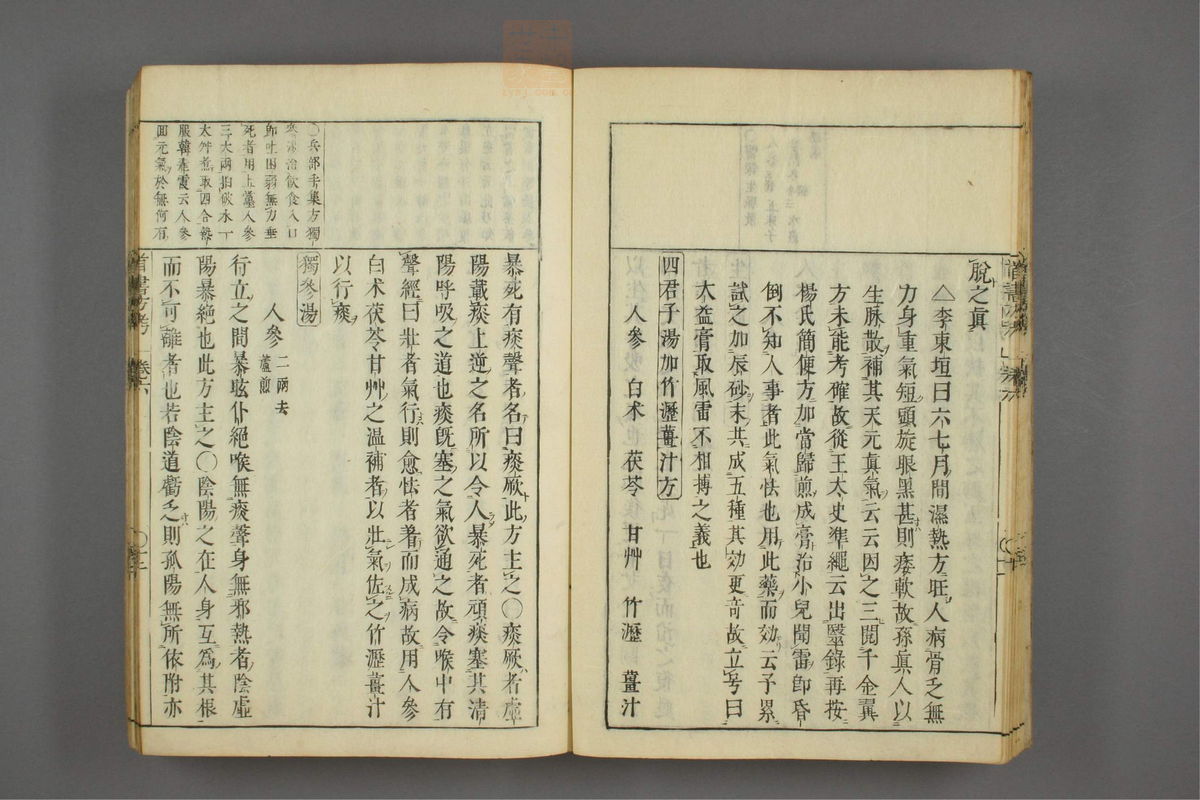 脫之眞
△李東垣曰六七月間濕熱方旺人病骨乏無
力身重氣短頭旋眼黑甚則痿軟故孫眞人以
生脉散補其天元眞氣云云因之三閱千金翼
方未能考確故從王太史準繩云出醫錄再按
楊氏簡便方加當歸煎成膏治小兒聞雷卽昏
倒不知人事者此氣怯也用此藥而効云予累
試之加辰砂末共成五種其効更奇故立号曰
大益膏取風雷不相搏之義也
四君子湯加竹瀝薑汁方
人參 白术 茯苓 甘艸 竹瀝 薑汁
暴死有痰聲者名曰痰厥此方主之〇痰厥者虛
陽載痰上逆之名所以令人暴死者頑痰塞其清
陽呼吸之道也痰旣塞之氣欲通之故令喉中有
聲經曰壯者氣行則愈怯者着而成病故用人參
白术茯苓甘艸之温補者以壯氣佐之竹瀝薑汁
以行痰
獨參湯
人參二兩去
蘆煎
行立之間暴眩仆絕喉無痰聲身無邪熱者陰虛
陽暴絕也此方主之〇陰陽之在人身互爲其根
而不可離者也若陰道虧乏則孤陽無所依附亦
〇兵部手集方獨
參湯治飲食入口
卽吐困弱無力垂
死者用上黨人參
三大兩拍破水一
大升煮取四合熱
服韓𢘆霞云人參
回元氣於無何有